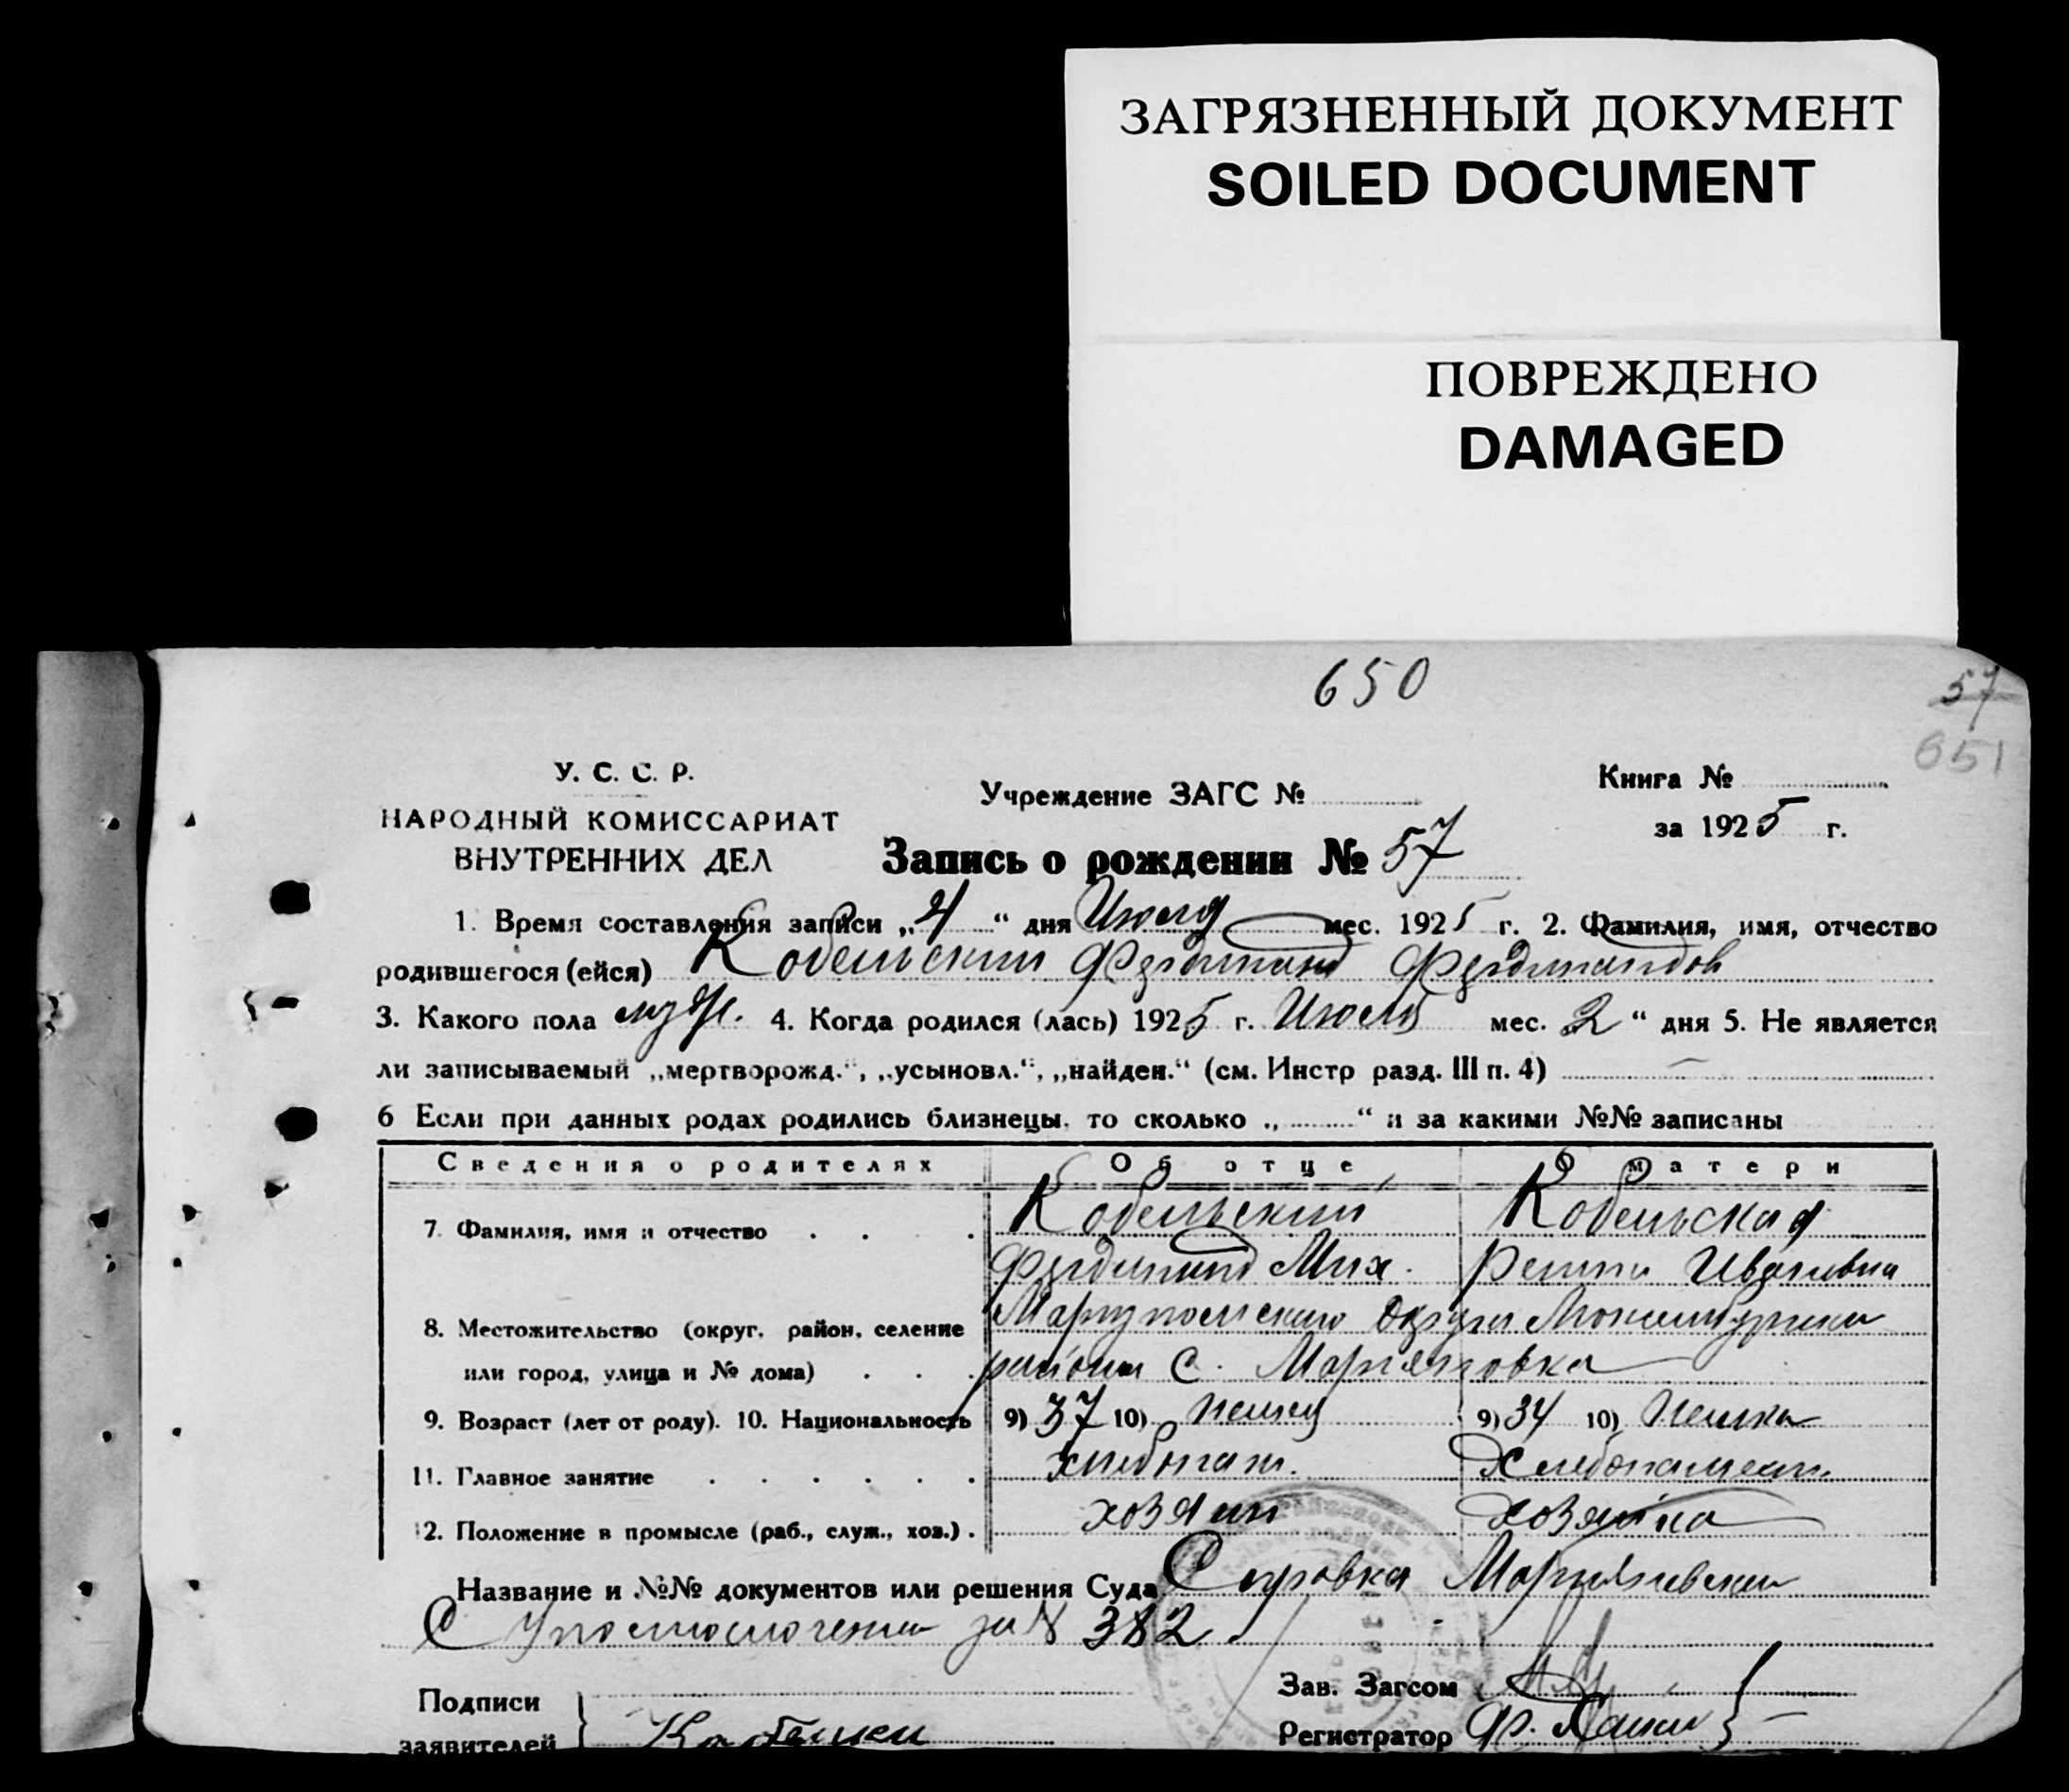 ЗАГРЯЗНЕННЫЙ ДОКУМЕНТ
SOILED DOCUMENT
ПОВРЕЖДЕНО
DAMAGED
650
57
651
У. С. С. Р.
НАРОДНЫЙ КОМИССАРИАТ
ВНУТРЕННИХ ДЕЛ
Учреждение ЗАГС №
Книга №
за 1925 г.
Запись о рождении № 57
1. Время составления записи „4“ дня Июля мес. 1925 г. 2. Фамилия, имя, отчество
родившегося (ейся) Кобельский Фердинанд Фердинандов
3. Какого пола муж. 4. Когда родился (лась) 1925 г. Июля мес. 2 “ дня 5. Не является
ли записываемый „мертворожд.“, „усыновл.“, „найден.“ (см. Инстр разд. III п. 4) —
6 Если при данных родах родились близнецы, то сколько „ “ и за какими №№ записаны
Сведения о родителях Об отце О матери
7. Фамилия, имя и отчество Кобельский Кобельская
Фердинанд Мих. Ивановна
8. Местожительство (округ, район, селение Мариупольского Округа
или город, улица и № дома) района С. Марьяновка
9. Возраст (лет от роду). 10. Национальность 9) 37 10) Немец 9) 34 10) Немка
11. Главное занятие хлебопаш. Хлебопашец
12. Положение в промысле (раб., служ., хоз.) хозяин хозяйка
Название и №№ документов или решения Суда Справка
С за № 382
Подписи
заявителей
Зав. Загсом
Регистратор